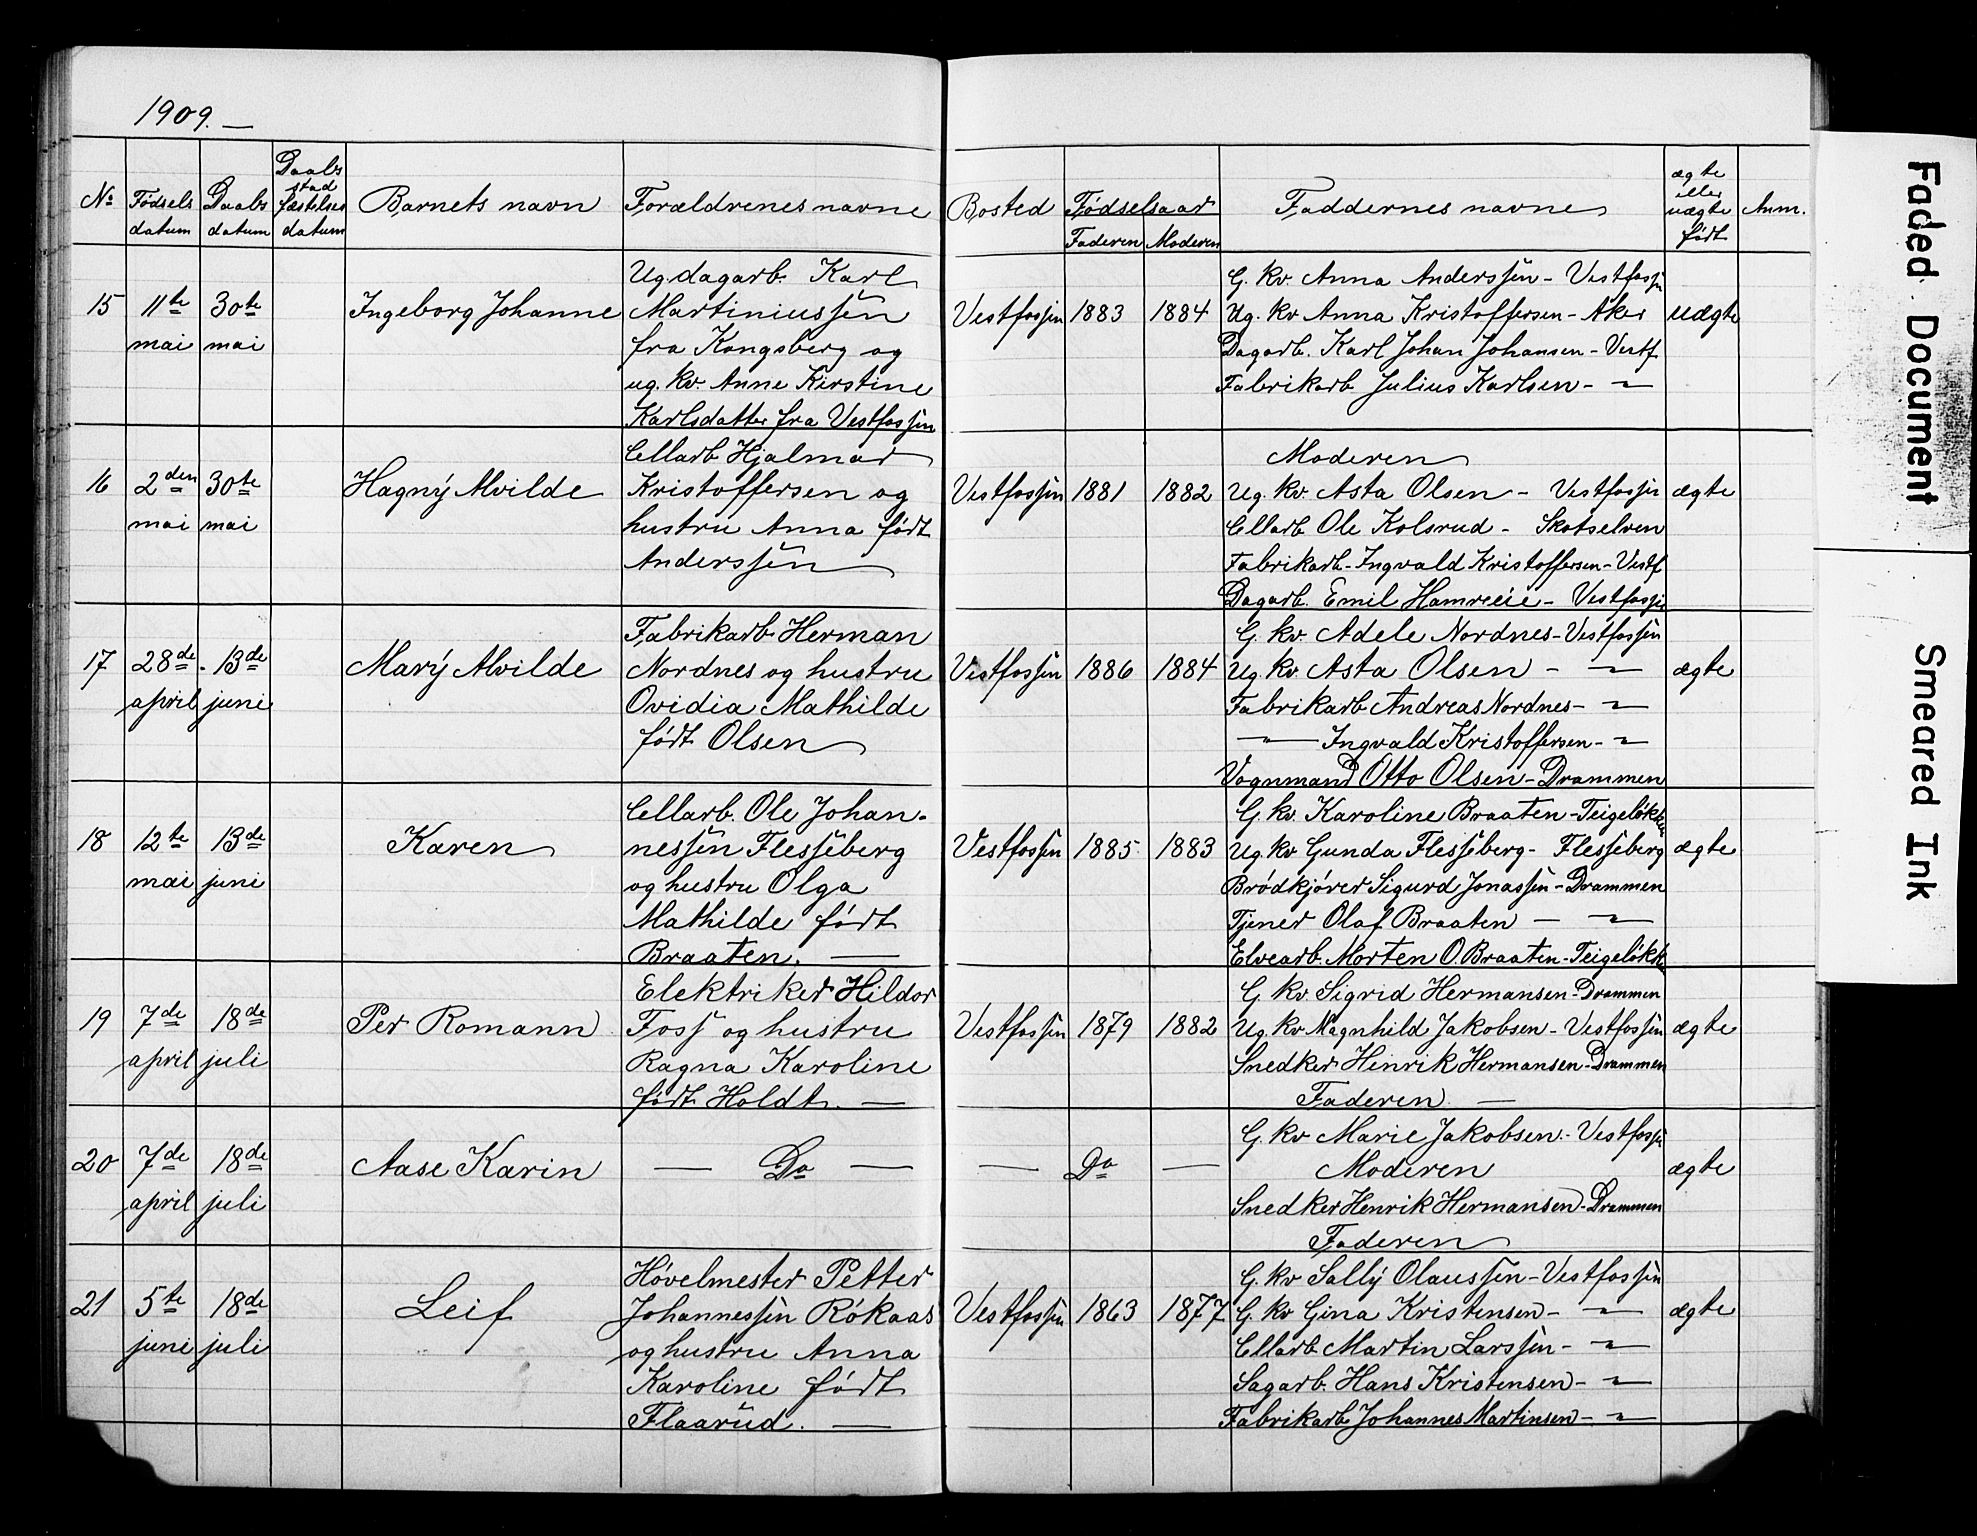 1909. —
No
Fødsels datum
Daabs datum
Daabs stadfæstelses datum
Barnets navn
Forældrenes navne
Bosted
Fødselsaar
Faderen
Moderen
Faddernes navne
ægte eller uægte født
Anm.
15
11te mai
30te mai
Ingeborg Johanne
Ug. dagarb. Karl
Martiniussen
fra Kongsberg og
ug. kv. Anne Kirstine
Karlsdatter fra Vestfossen
Vestfossen
1883
1884
G. kv. Anna Anderssen - Vestfossen
Ug. kv. Anna Kristoffersen - Aker
Dagarb. Karl Johan Johansen - Vestf
Fabrikarb Julius Karlsen - "
uægte
16
2den mai
30te mai
Hagny Alvilde
Cellarb Hjalmar
Kristoffersen og
hustru Anna født
Anderssen
Vestfossen
1881
1882
Moderen
Ug. kv. Asta Olsen - Vestfossen
Cellarb Ole Kolsrud - Skotselven
Fabrikarb. Ingvald Kristoffersen - Vestf
Dagarb. Emil Hamreeie - Vestfossen
ægte
17
28de april
13de juni
Mary Alvilde
Fabrikarb. Herman
Nordnes og hustru
Ovidia Mathilde
født Olsen
Vestfossen
1886
1884
G. kv. Adele Nordnes - Vestfossen
Ug. kv. Asta Olsen - "
Fabrikarb Andreas Nordnes - "
— " — Ingvald Kristoffersen - "
Vognmand Otto Olsen - Drammen
ægte
18
12te mai
13de juni
Karen
Cellarb. Ole Johan-
nessen Flesseberg
og hustru Olga
Mathilde født
Braaten. —
Vestfossen
1885
1883
G. kv. Karoline Braaten - Teigeløkken
Ug. kv Gunda Flesseberg - Flesseberg
Brødkjører Sigurd Jonassen - Drammen
Tjener Olaf Braaten — "
Elvearb. Morten O. Braaten - Teigeløkken
ægte
19
7de april
18de juli
Per Romann
Elektriker Hildor
Foss og hustru
Ragna Karoline
født Holdt. —
Vestfossen
1879
1882
G. kv. Sigrid Hermansen - Drammen
Ug. kv Magnhild Jakobsen - Vestfossen
Snedker Hinrik Hermansen - Drammen
Faderen. —
ægte
20
7de april
18de juli
Aase Karin
— Do —
— Do —
G. kv Marie Jakobsen. - Vestfossen
Moderen
Snedker Henrik Hermansen - Drammen
Faderen
ægte
21
5te juni
18de juli
Leif
Høvelmester Petter
Johannessen Røkaas
og hustru Anna
Karoline født
Flaarud. —
Vestfossen
1863
1877
G. kv Sally Olaussen - Vestfossen
G. kv Gina Kristensen - "
Cellarb Martin Larssen - "
Sagarb. Hans Kristensen - "
Fabrikarb Johannes Martinsen - "
ægte
Faded Document
Smeared Ink